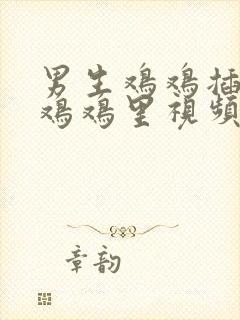 男生鸡鸡插
鸡鸡里视频
章韵